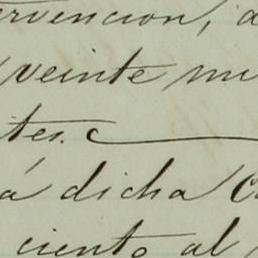 rvencion,
veinte mi
tes.
á dicha C
ciento al